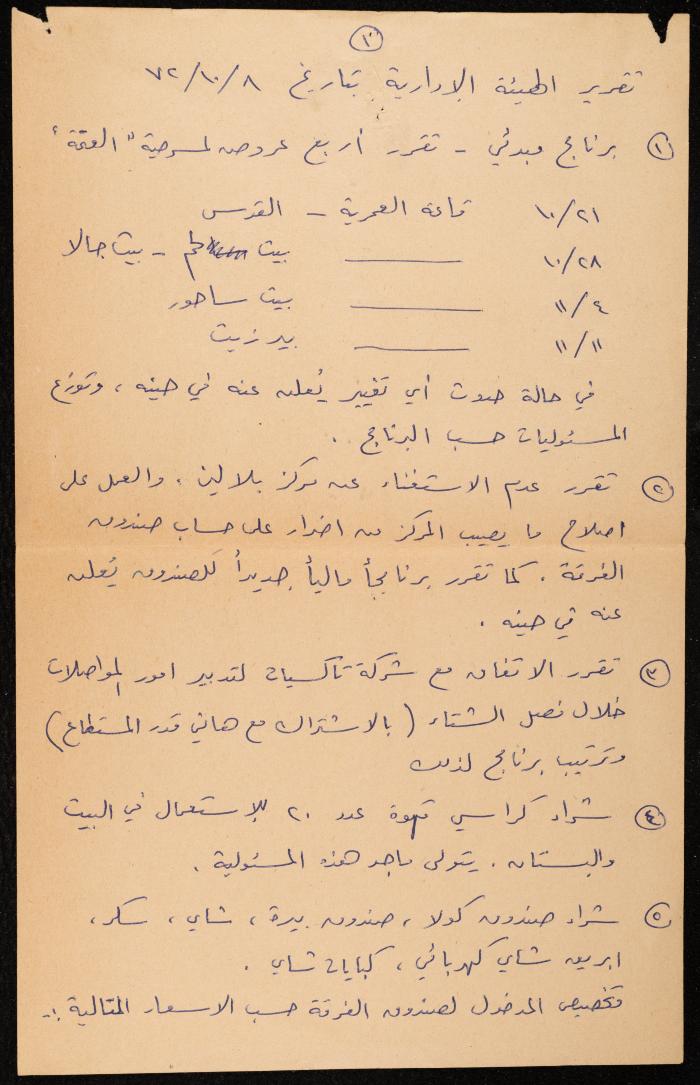 ١
تقرير الهيئة الإدارية بتاريخ ٧٢/١٠/٨
١ برنامج مبدئي - تقرر أربع عروض لمسرحية "العتمة"
١٠/٢١ قاعة العمرية - القدس
١٠/٢٨ ——— بيت لحم - بيت جالا
١١/٤ ——— بيت ساحور
١١/١١ ——— بير زيت
في حالة حدوث أي تغيير يُعلن عنه في حينه ، وتوزع
المسئوليات حسب البرنامج .
٢ تقرر عدم الاستغناء عن مركز بلالين ، والعمل على
اصلاح ما يصيب المركز من اضرار على حساب صندوق
الفرقة . كما تقرر برنامجاً مالياً جديداً للصندوق يُعلن
عنه في حينه .
٣ تقرر الاتفاق مع شركة تاكسيات لتدبير امور المواصلات
خلال فصل الشتاء ( بالاشتراك مع هاني قدر المستطاع )
وترتيب برنامج لذلك
٤ شراء كراسي قهوة عدد ٢٠ للإستعمال في البيت
والبستان . يتولى ماجد هذه المسئولية .
٥ شراء صندوق كولا ، صندوق بيرة ، شاي ، سكر ،
ابريق شاي كهربائي ، كبايات شاي .
وتخصيص المدخول لصندوق الفرقة حسب الاسعار التالية :-